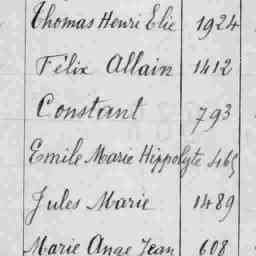 Thomas Henri Elie 1924
Félix Allain 1412
Constant 793
Emile Marie Hippolyte 465
Jules Marie 1489
Marie Ange Jean 608